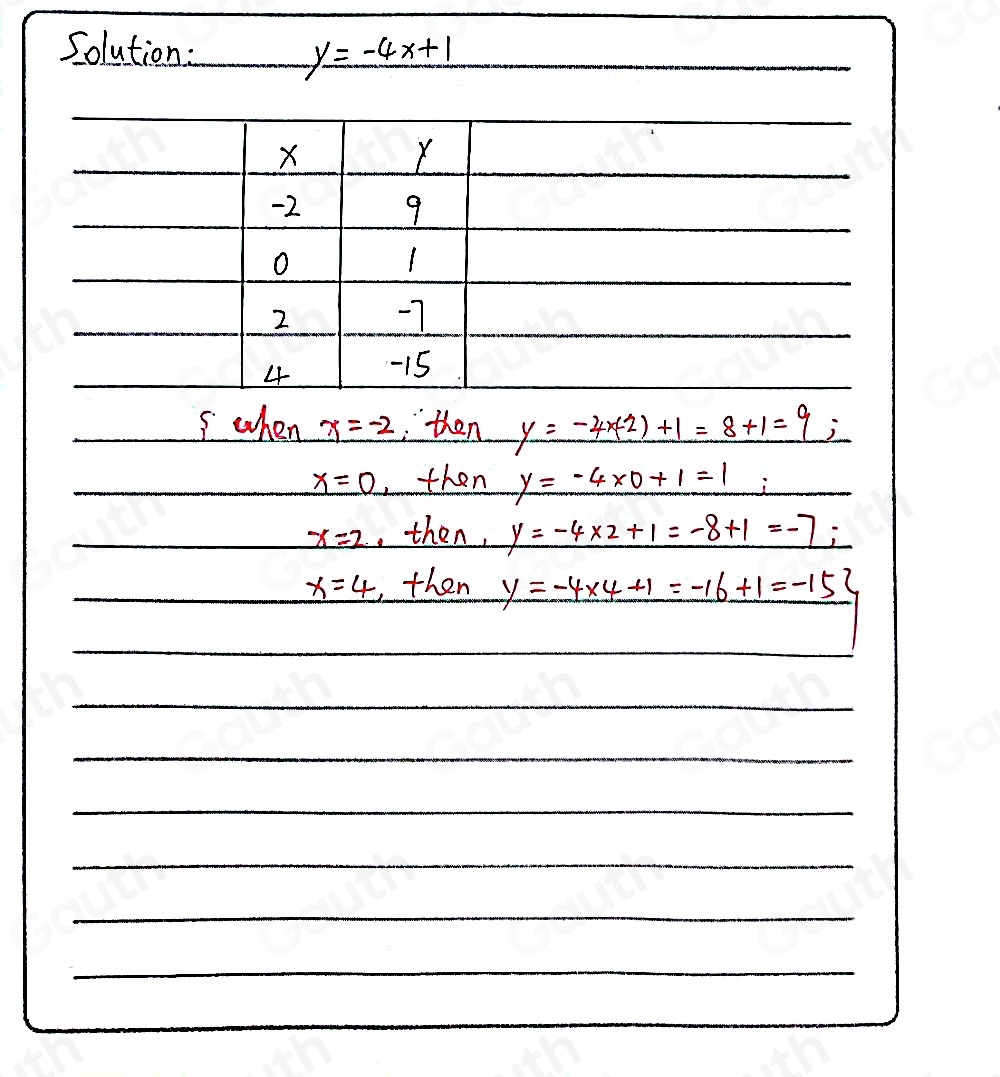 Solution: y = -4x+1
x y
-2 9
0 1
2 -7
4 -15
{ when x = -2, then y = -4×(-2) + 1 = 8 + 1 = 9 ;
x = 0, then y = -4×0 + 1 = 1 ;
x = 2, then, y = -4×2 + 1 = -8 + 1 = -7 ;
x = 4, then y = -4×4 + 1 = -16 + 1 = -15 }
Gauth